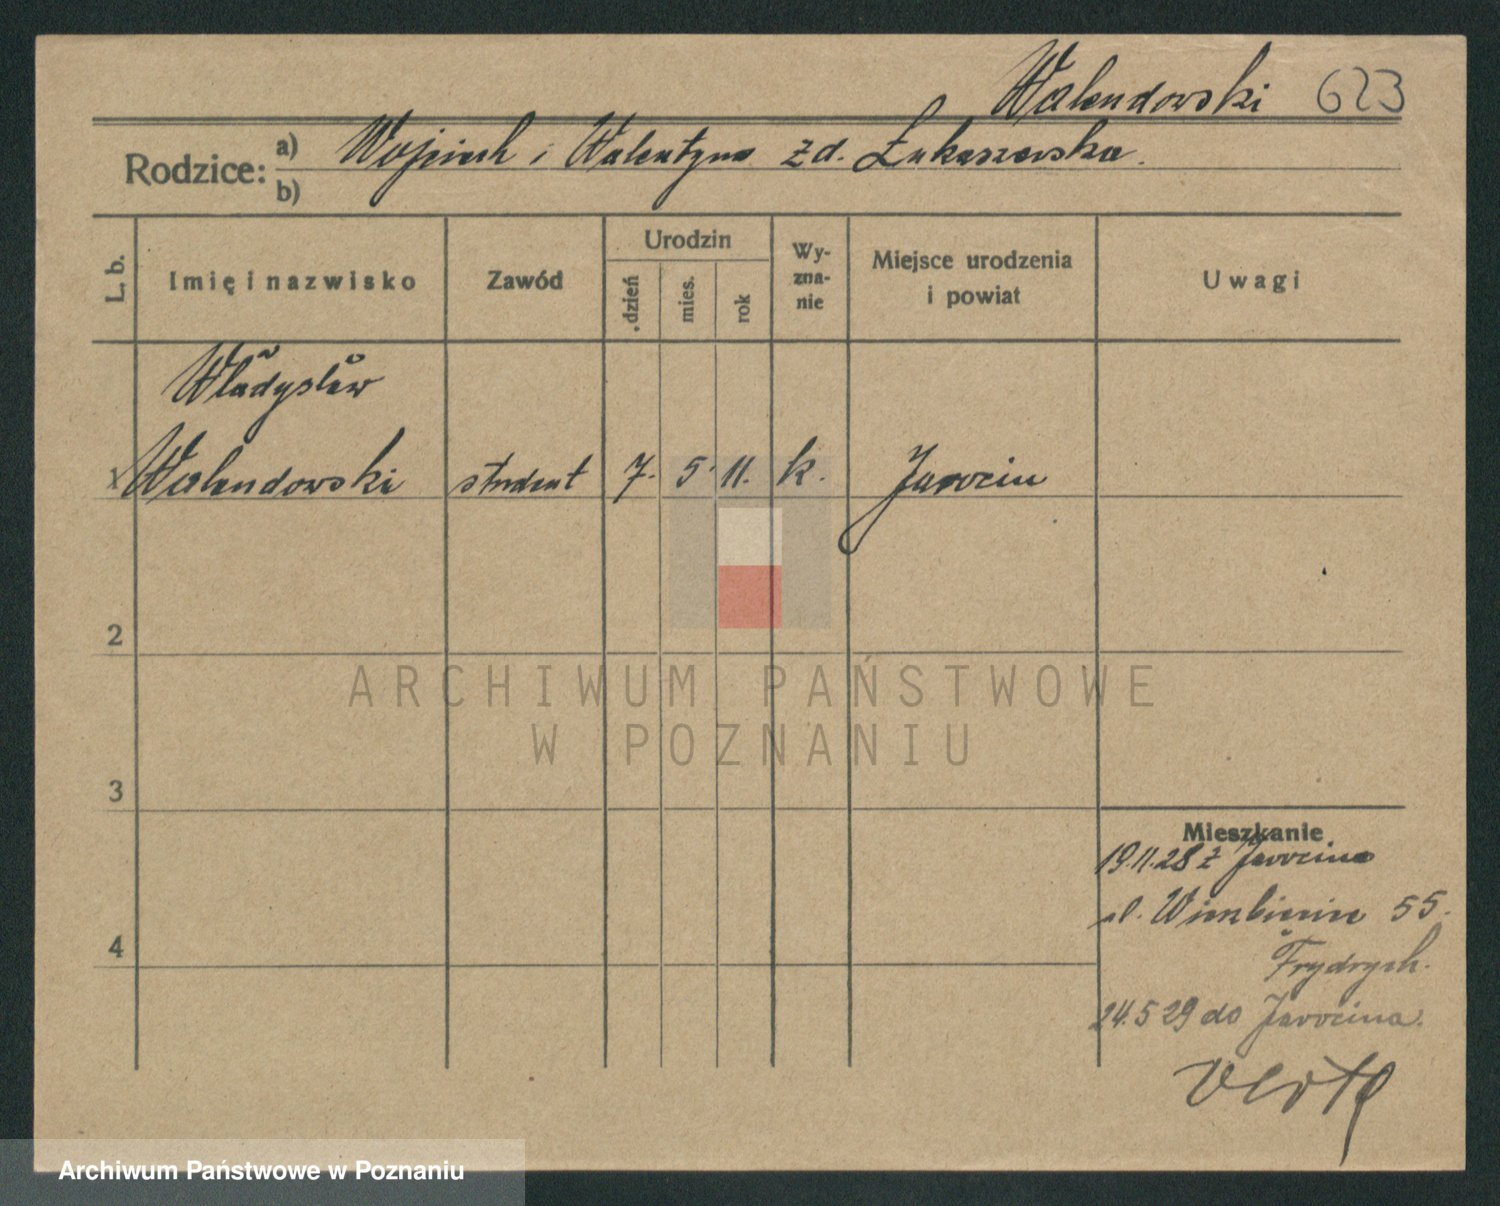 Walendowski 623
Rodzice: a) Wojciech i Walentyna z d. Łukaszewska.
b)
L. b. Imię i nazwisko Zawód Urodzin dzień mies. rok Wy-zna-nie Miejsce urodzenia i powiat Uwagi
Władysław
1 Walendowski student 7. 5. 11. k. Jarocin
2
3
4
Mieszkanie
19.11.28 z Jarocina
ul. 55.
Frydrych.
24.5 29 do Jarocina.
ARCHIWUM PAŃSTWOWE
W POZNANIU
Archiwum Państwowe w Poznaniu